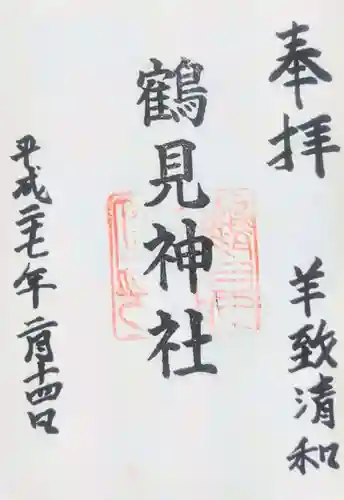 奉拝
羊致清和
鶴見神社
平成二十七年二月十四日